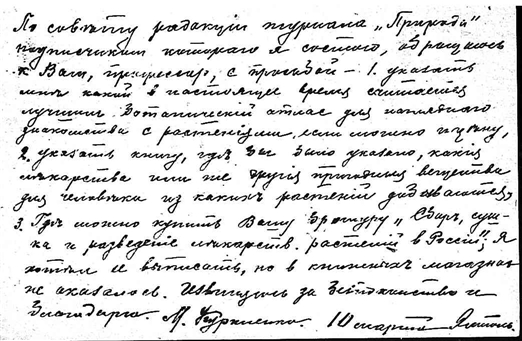 По совѣту редакціи журнала „Природа"
подписчикам котораго я состою, обращаюсь
к Вам, профессор, с просьбой – 1. указать
мнѣ какій в настоящее время считается
лучшим ботаническій атлас для наглядного
знакомства с растеніями, если можно и цѣну,
2. указать книгу, гдѣ бы было указано, какія
лѣкарства или же другія пригодныя вещества
для человѣка из каких растеній добываются,
3. Гдѣ можно купить Вашу брошуру „Сбор, суш-
ка и разведеніе лѣкарств. растеній в Россіи"; я
хотѣл ее выписать, но в книжных магазинах
не оказалось. Извиняюсь за безпокойство и
благодарю. М. 10 марта